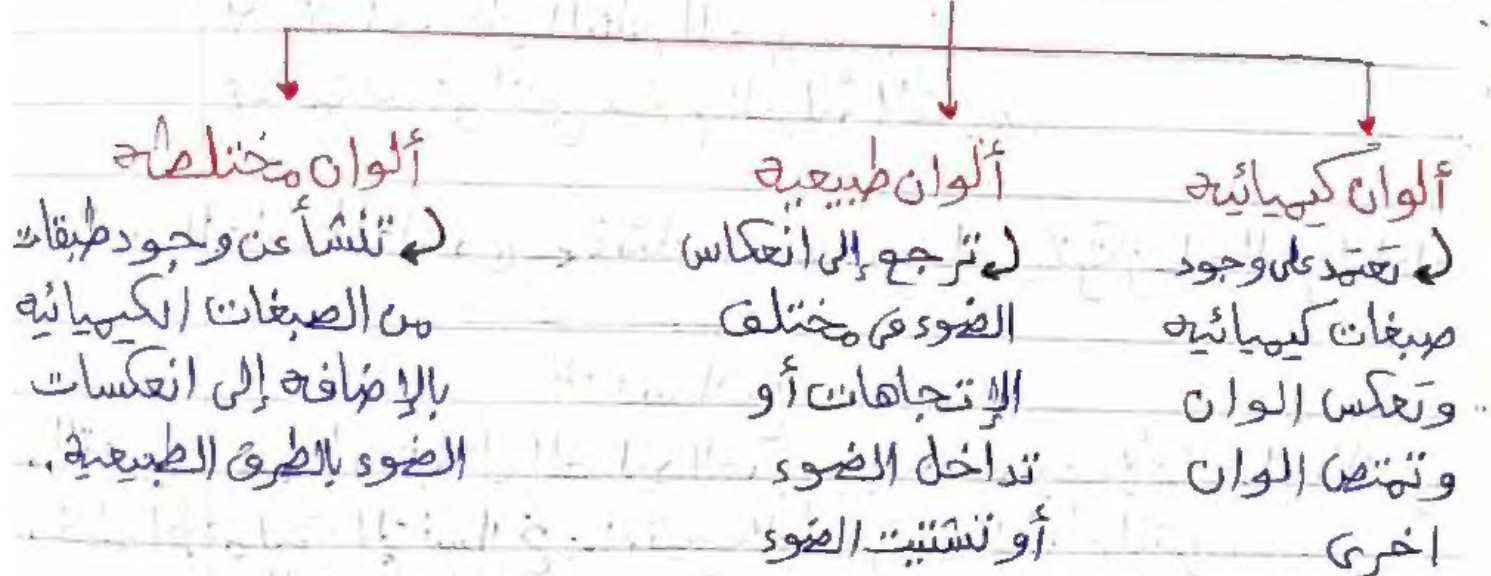 ألوان كيميائية
تعتمد على وجود
صبغات كيميائية
وتعكس الوان
وتمتص الوان
اخرى
ألوان طبيعية
ترجع إلى انعكاس
الضوء في مختلف
الإتجاهات أو
تداخل الضوء
أو تشتيت الضوء
ألوان مختلطة
تنشأ عن وجود طبقات
من الصبغات الكيميائية
بالإضافة إلى انعكسات
الضوء بالطرق الطبيعية.